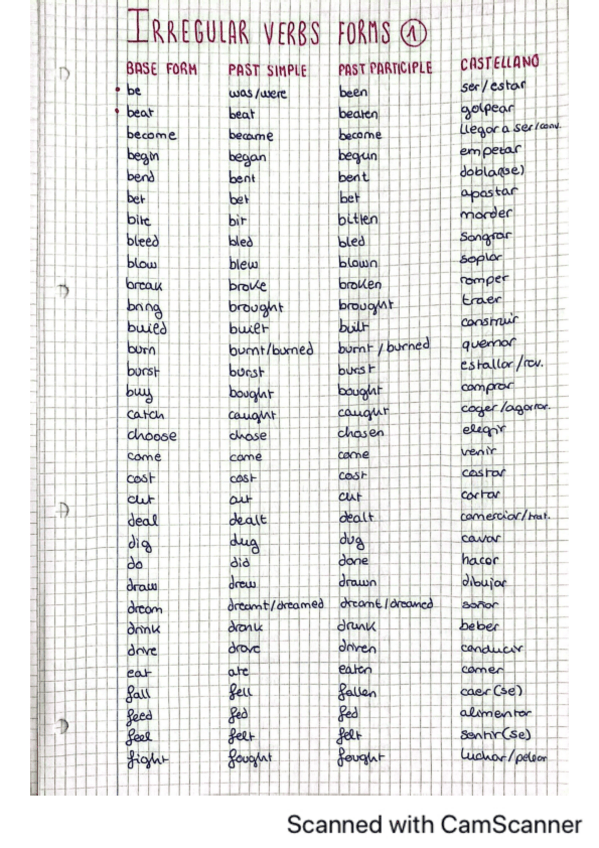 IRREGULAR VERBS FORMS 1
BASE FORM PAST SIMPLE PAST PARTICIPLE CASTELLANO
be was/were been ser/estar
beat beat beaten golpear
become became become llegar a ser/conv.
begin began begun empezar
bend bent bent doblar(se)
bet bet bet apostar
bite bit bitten morder
bleed bled bled sangrar
blow blew blown soplar
break broke broken romper
bring brought brought traer
build built built construir
burn burnt/burned burnt/burned quemar
burst burst burst estallar/rev.
buy bought bought comprar
catch caught caught coger/agarrar.
choose chose chosen elegir
come came come venir
cost cost cost costar
cut cut cut cortar
deal dealt dealt comerciar/trat.
dig dug dug cavar
do did done hacer
draw drew drawn dibujar
dream dreamt/dreamed dreamt/dreamed soñar
drink drank drunk beber
drive drove driven conducir
eat ate eaten comer
fall fell fallen caer(se)
feed fed fed alimentar
feel felt felt sentir(se)
fight fought fought luchar/pelear
Scanned with CamScanner